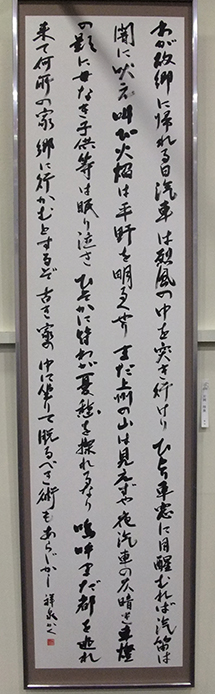 わが故郷に帰れる日汽車は烈風の中を突き行けりひとり車窓に目醒むれば汽笛は
闇に吠え叫び火焔は平野を明るくせりまだ上州の山は見えずや夜汽車の仄暗き車燈
の影に母なき子供等は眠り泣きひそかに皆わが憂愁を探れるなり嗚呼また都を逃れ
来て何所の家郷に行かむとするぞ古き家の中に坐りて眠るべき術もあらじかし 祥泉かく